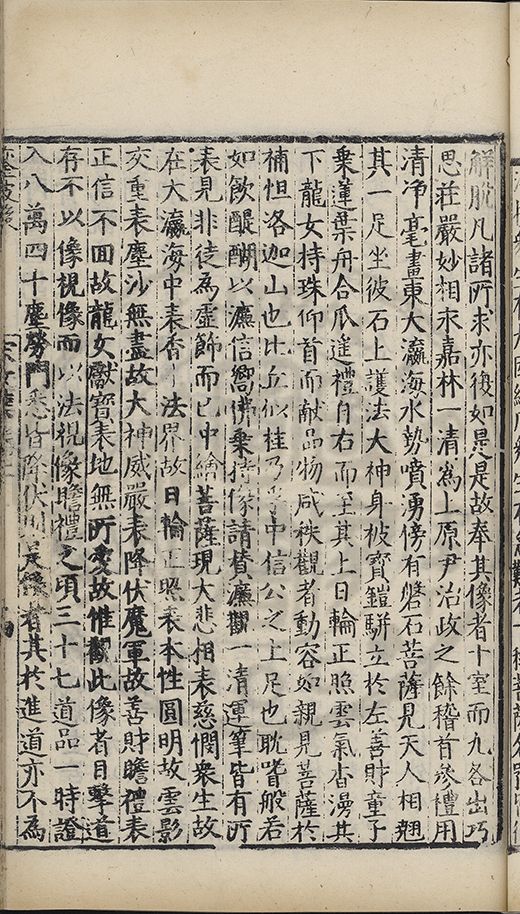 解脫凡諸所求亦復如是是故奉其像者十室而九各出巧
思莊嚴妙相永嘉林一清為上原尹治政之餘稽首參禮用
清净毫畫東大瀛海水勢噴湧傍有磐石菩薩見天人相翹
其一足坐彼石上護法大神身被寶鎧駢立於左善財童子
乗蓮葉舟合瓜遙禮自右而至其上日輪正照雲氣杳湧其
下龍女持珠仰首而献品物咸秩觀者動容如親見菩薩於
補怛洛迦山也比丘似桂乃孚中信公之上足也耽嗜般若
如飲醍醐以廉信嚮佛乗持像請賛廉觀一清運筆皆有所
表見非徒為虛飾而已中繪菩薩現大悲相表慈憫衆生故
在大瀛海中表香法界故日輪正照表本性圓明故雲影
交重表塵沙無盡故大神威嚴表降伏魔軍故善財瞻禮表
正信不回故龍女獻寶表地無所愛故惟觀此像者目擊道
存不以像視像而以法視像瞻禮之頃三十七道品一時證
入八萬四十塵勞門悉皆降伏者其於進道亦不為